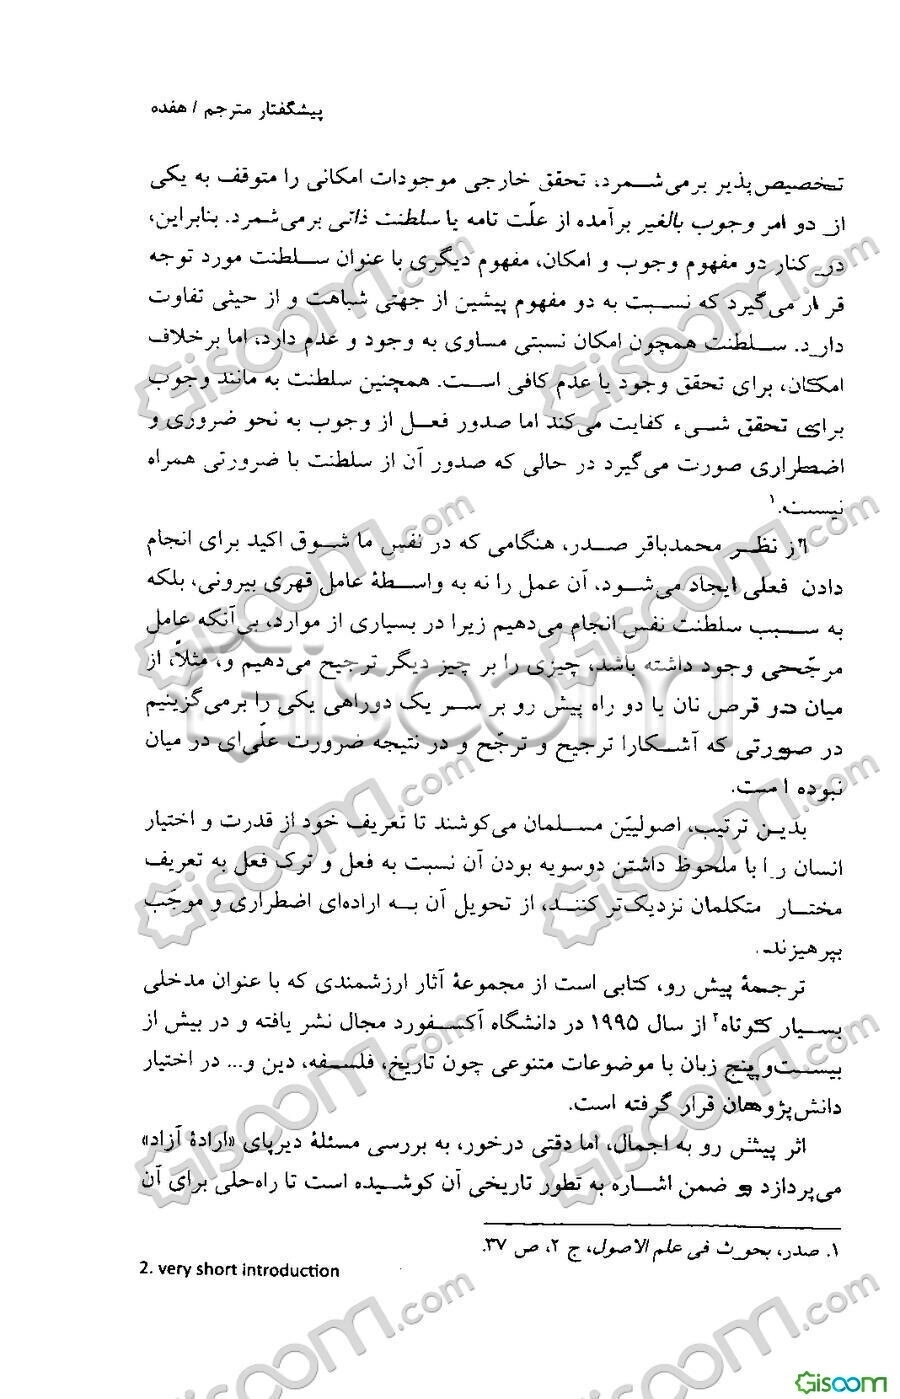 پیشگفتار مترجم / هفده
تخصیص‌پذیر برمی‌شمرد، تحقق خارجی موجودات امکانی را متوقف به یکی
از دو امر وجوب بالغیر برآمده از علّت تامه یا سلطنت ذاتی برمی‌شمرد. بنابراین،
در کنار دو مفهوم وجوب و امکان، مفهوم دیگری با عنوان سلطنت مورد توجه
قرار می‌گیرد که نسبت به دو مفهوم پیشین از جهتی شباهت و از حیثی تفاوت
دارد. سلطنت همچون امکان نسبتی مساوی به وجود و عدم دارد، اما برخلاف
امکان، برای تحقق وجود یا عدم کافی است. همچنین سلطنت به مانند وجوب
برای تحقق شیء کفایت می‌کند اما صدور فعل از وجوب به نحو ضروری و
اضطراری صورت می‌گیرد در حالی که صدور آن از سلطنت با ضرورتی همراه
نیست.۱
از نظر محمدباقر صدر، هنگامی که در نفس ما شوق اکید برای انجام
دادن فعلی ایجاد می‌شود، آن عمل را نه به واسطهٔ عامل قهری بیرونی، بلکه
به سبب سلطنت نفس انجام می‌دهیم زیرا در بسیاری از موارد، بی‌آنکه عامل
مرجّحی وجود داشته باشد، چیزی را بر چیز دیگر ترجیح می‌دهیم و، مثلاً، از
میان دو قرص نان یا دو راه پیش رو بر سر یک دوراهی یکی را برمی‌گزینیم
در صورتی که آشکارا ترجیح و ترجّح و در نتیجه ضرورت علّی‌ای در میان
نبوده است.
بدین ترتیب، اصولییّن مسلمان می‌کوشند تا تعریف خود از قدرت و اختیار
انسان را با ملحوظ داشتن دوسویه بودن آن نسبت به فعل و ترک فعل به تعریف
مختار متکلمان نزدیک‌تر کنند، از تحویل آن به اراده‌ای اضطراری و موجَب
بپرهیزند.
ترجمهٔ پیش رو، کتابی است از مجموعهٔ آثار ارزشمندی که با عنوان مدخلی
بسیار کوتاه۲ از سال ۱۹۹۵ در دانشگاه آکسفورد مجال نشر یافته و در بیش از
بیست‌وپنج زبان با موضوعات متنوعی چون تاریخ، فلسفه، دین و... در اختیار
دانش‌پژوهان قرار گرفته است.
اثر پیش رو به اجمال، اما دقتی درخور، به بررسی مسئلهٔ دیرپای «ارادهٔ آزاد»
می‌پردازد و ضمن اشاره به تطور تاریخی آن کوشیده است تا راه‌حلی برای آن
۱. صدر، بحوث فی علم الاصول، ج ۲، ص ۳۷.
2. very short introduction
Giscom.com
Giscom